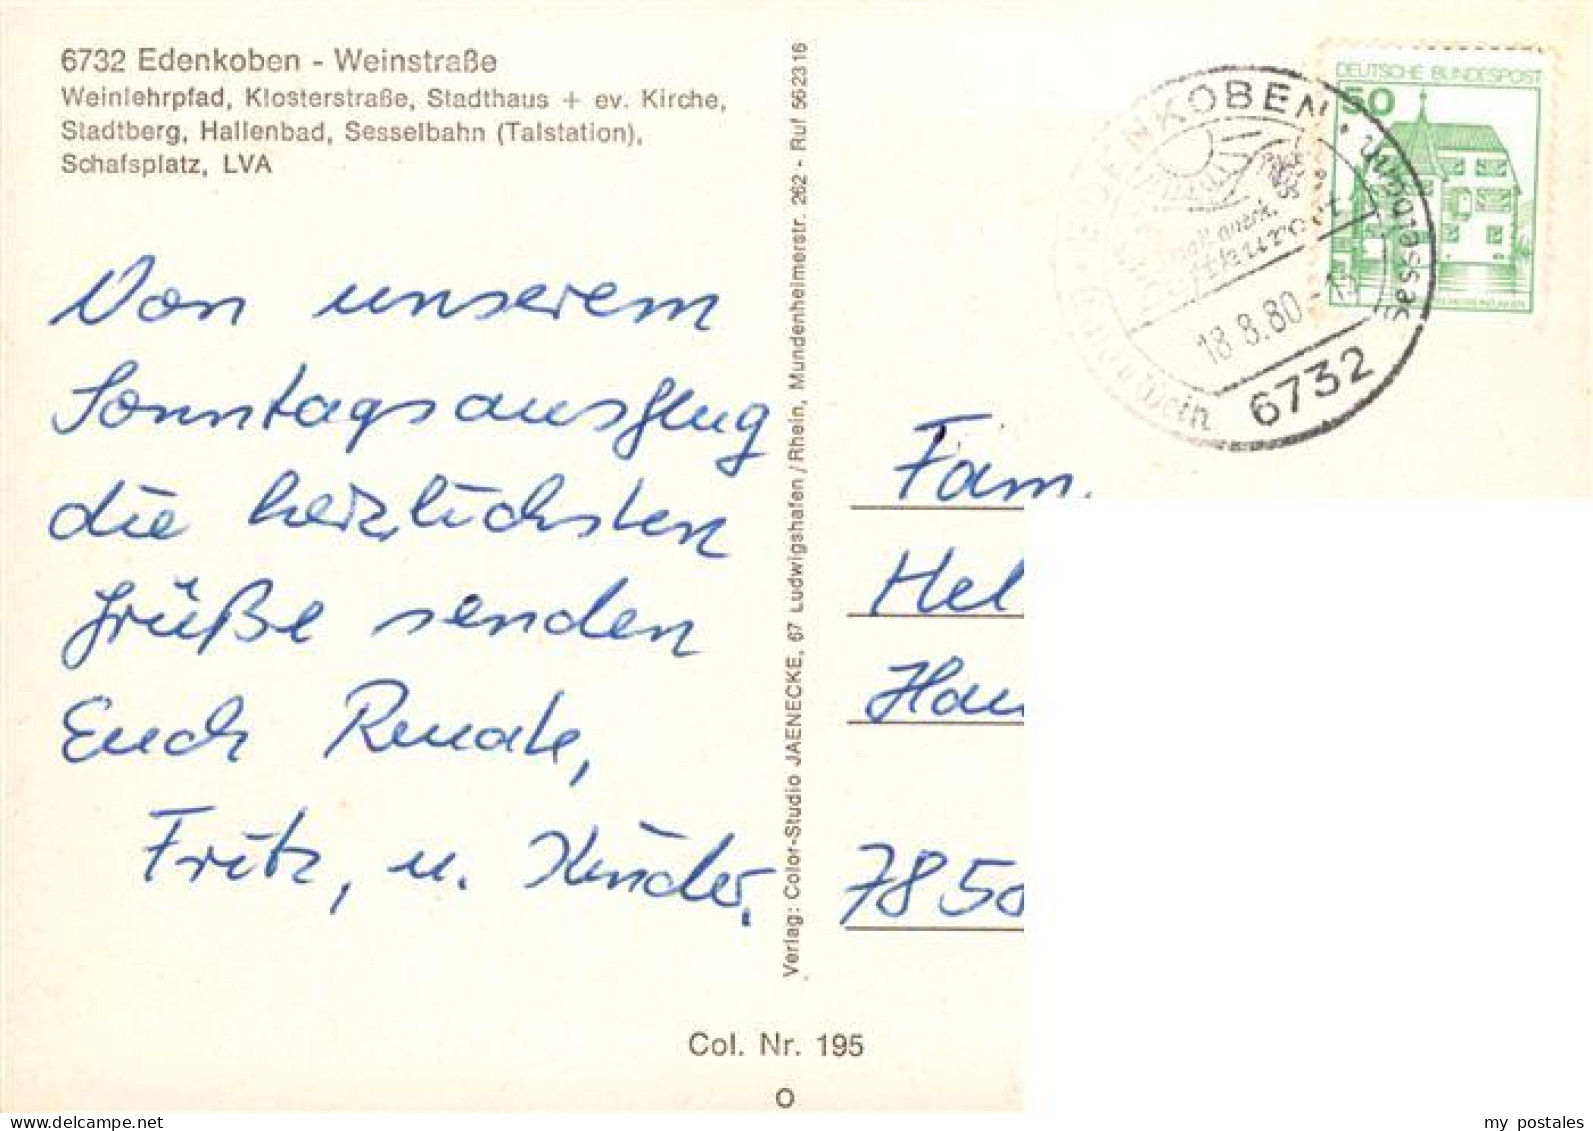 6732 Edenkoben - Weinstraße
Weinlehrpfad, Klosterstraße, Stadthaus + ev. Kirche,
Stadtberg, Hallenbad, Sesselbahn (Talstation),
Schafsplatz, LVA
Von unserem
Sonntagsausflug
die herzlichsten
Grüße senden
Euch Renate,
Fritz, u. Kinder.
Verlag: Color-Studio JAENECKE, 67 Ludwigshafen/Rhein, Mundenheimerstr. 262 - Ruf 562316
DEUTSCHE BUNDESPOST
50
EDENKOBEN
Sesselbahn
18.8.80
Wein
6732
Fam.
Hel
Hau
7850
Col. Nr. 195
O
my postales